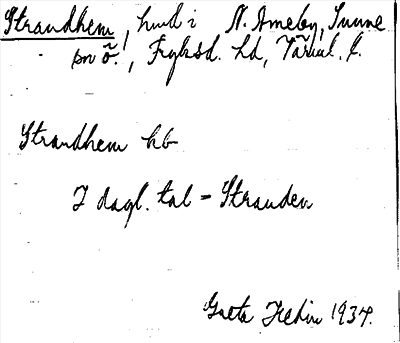 Strandhem, hmd i N. Ameby, Sunne
sn ö., Fryksd. hd, Värml. l.
Strandhem hb
I dagl. tal = Stranden
Greta 1934.